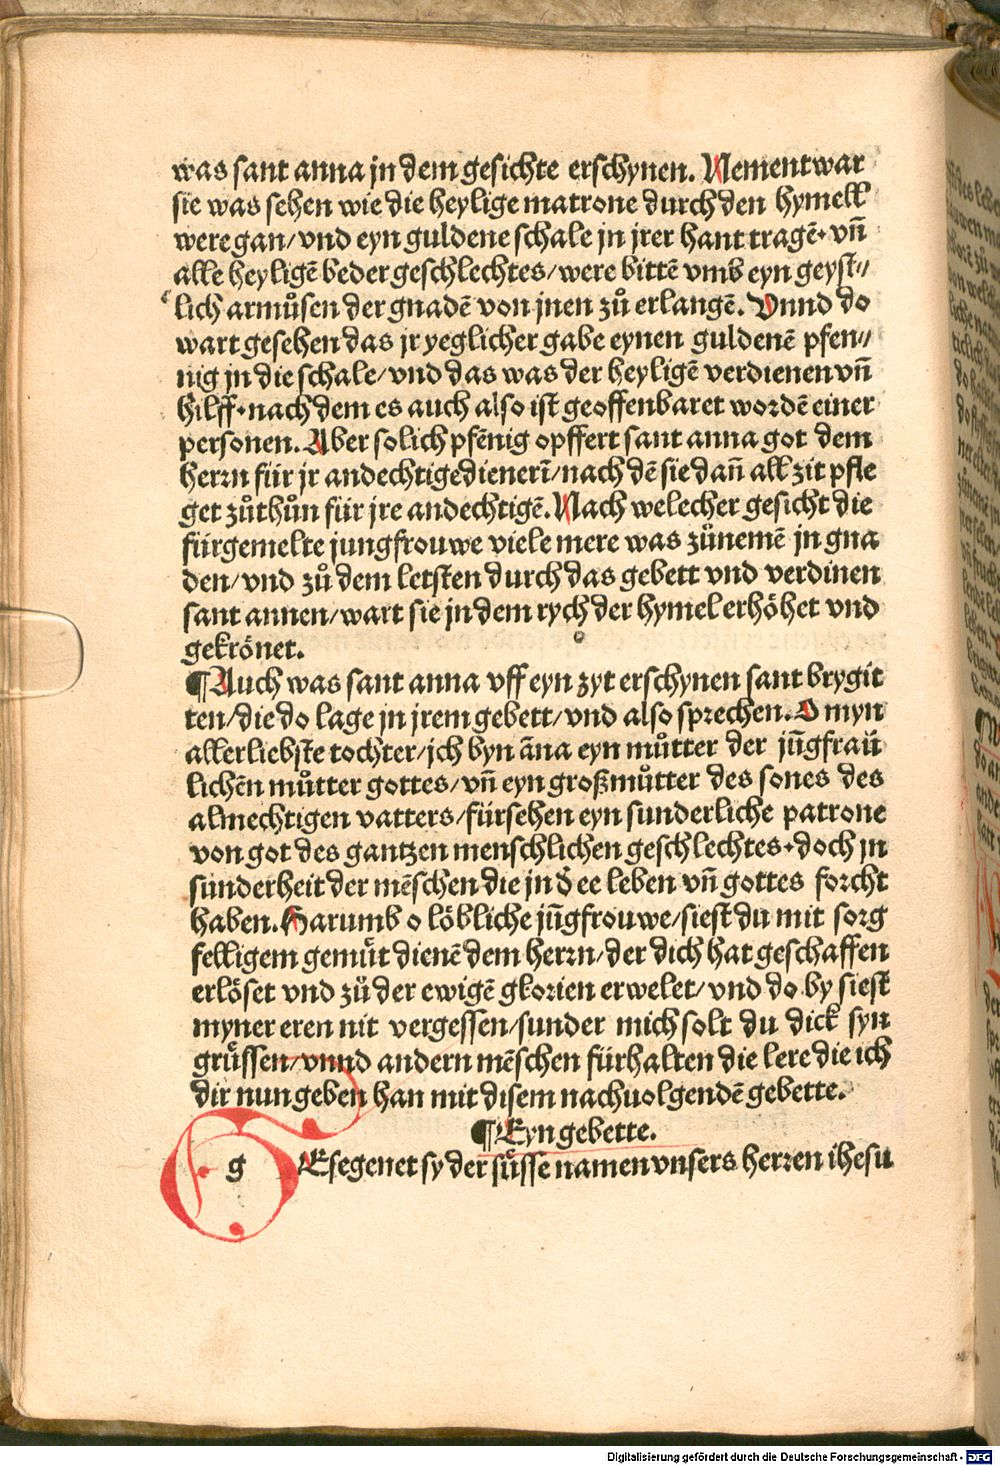 was sant anna jn dem gesichte erschynen. Nement war
sie was sehen wie die heylige matrone durch den hymell
were gan/vnd eyn guldene schale jn jrer hant tragē·vn̄
alle heyligē beder geschlechtes/were bittē vmb eyn geyst⸗
lich armůsen der gnadē von jnen zů erlangē. Vnnd do
wart gesehen das jr yeglicher gabe eynen guldenē pfen⸗
nig jn die schale/vnd das was der heyligē verdienen vn̄
hilff·nach dem es auch also ist geoffenbaret wordē einer
personen. Aber solich pfēnig opffert sant anna got dem
herrn für jr andechtige dienerī/nach dē sie dan̄ all zit pfle
get zůthůn für jre andechtigē. Nach welecher gesicht die
fürgemelte jungfrouwe viele mere was zůnemē jn gna
den/vnd zů dem letsten durch das gebett vnd verdinen
sant annen/wart sie jn dem rych der hymel erhöhet vnd
gekrönet.
¶Auch was sant anna vff eyn zyt erschynen sant brygit
ten/die do lage jn jrem gebett/vnd also sprechen. O myn
allerliebste tochter/jch byn āna eyn můtter der jūgfraü
lichēn můtter gottes/vn̄ eyn großmůtter des sones des
almechtigen vatters/fürsehen eyn sunderliche patrone
von got des gantzen menschlichen geschlechtes·doch jn
sunderheit der mēschen die jn d̄ ee leben vn̄ gottes forcht
haben. Harumb o löbliche jūgfrouwe/siest du mit sorg
felligem gemüt dienē dem herrn/der dich hat geschaffen
erlöset vnd zů der ewigē glorien erwelet/vnd do by siest
myner eren nit vergessen/sunder mich solt du dick syn
grüssen/vnnd andern mēschen fürhalten die lere die ich
dir nun geben han mit disem nachuolgendē gebette.
¶Eyn gebette.
gEsegenet sy der süsse namen vnsers herren ihesu
Digitalisierung gefördert durch die Deutsche Forschungsgemeinschaft - DFG